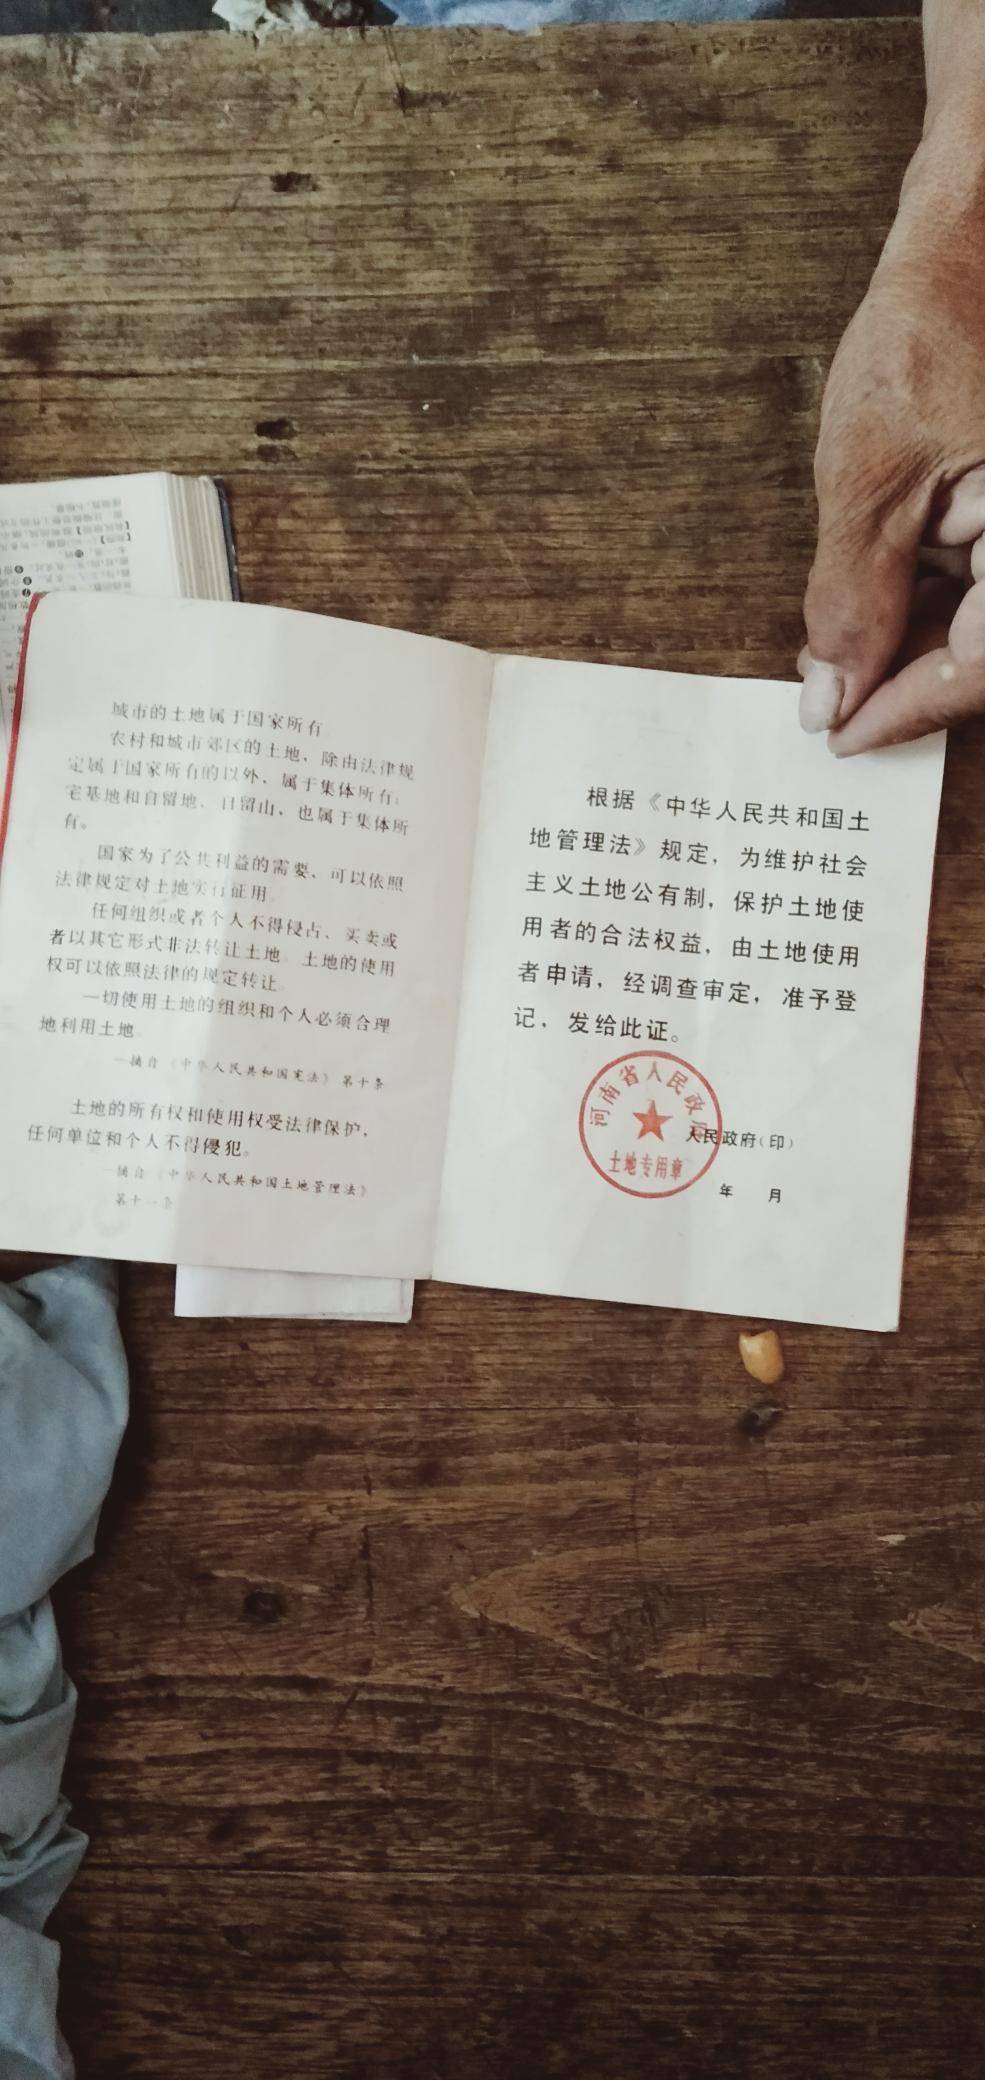 城市的土地属于国家所有
农村和城市郊区的土地、除由法律规
定属于国家所有的以外、属于集体所有;
宅基地和自留地、自留山，也属于集体所
有。
国家为了公共利益的需要、可以依照
法律规定对土地实行征用。
任何组织或者个人不得侵占、买卖或
者以其它形式非法转让土地。土地的使用
权可以依照法律的规定转让。
一切使用土地的组织和个人必须合理
地利用土地。
—摘自《中华人民共和国宪法》第十条
土地的所有权和使用权受法律保护，
任何单位和个人不得侵犯。
—摘自《中华人民共和国土地管理法》
第十一条
根据《中华人民共和国土
地管理法》规定，为维护社会
主义土地公有制，保护土地使
用者的合法权益，由土地使用
者申请，经调查审定，准予登
记，发给此证。
河南省人民政府
土地专用章
人民政府(印)
年 月